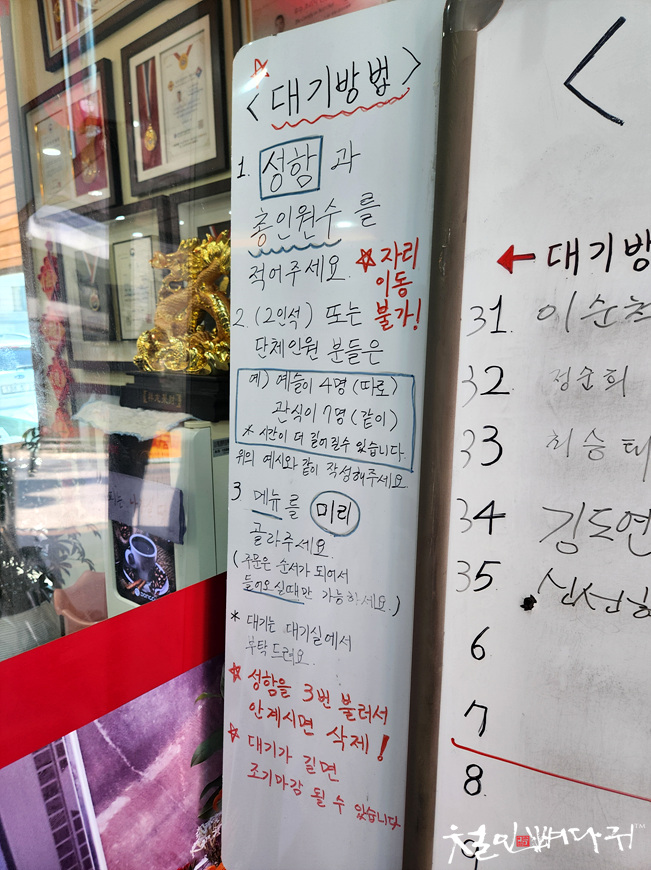 <대기방법>
1. 성함 과
총인원수 를
적어주세요.
☆자리
이동
불가!
2. (2인석) 또는
단체인원 분들은
예) 예슬이 4명 (따로)
관식이 7명 (같이)
* 시간이 더 길어질수 있습니다
위의 예시와 같이 작성해주세요.
3. 메뉴를 미리
골라주세요.
(주문은 순서가 되어서
들어오실때만 가능하세요.)
* 대기는 대기실에서
부탁드려요.
☆ 성함을 3번 불러서
안계시면 삭제!
☆ 대기가 길면
조기마감 될 수 있습니다
<
← 대기방
31 이순
32 정순희
33 최승태
34 김도연
35 신선
6
7
8
9
철인뼈다귀™